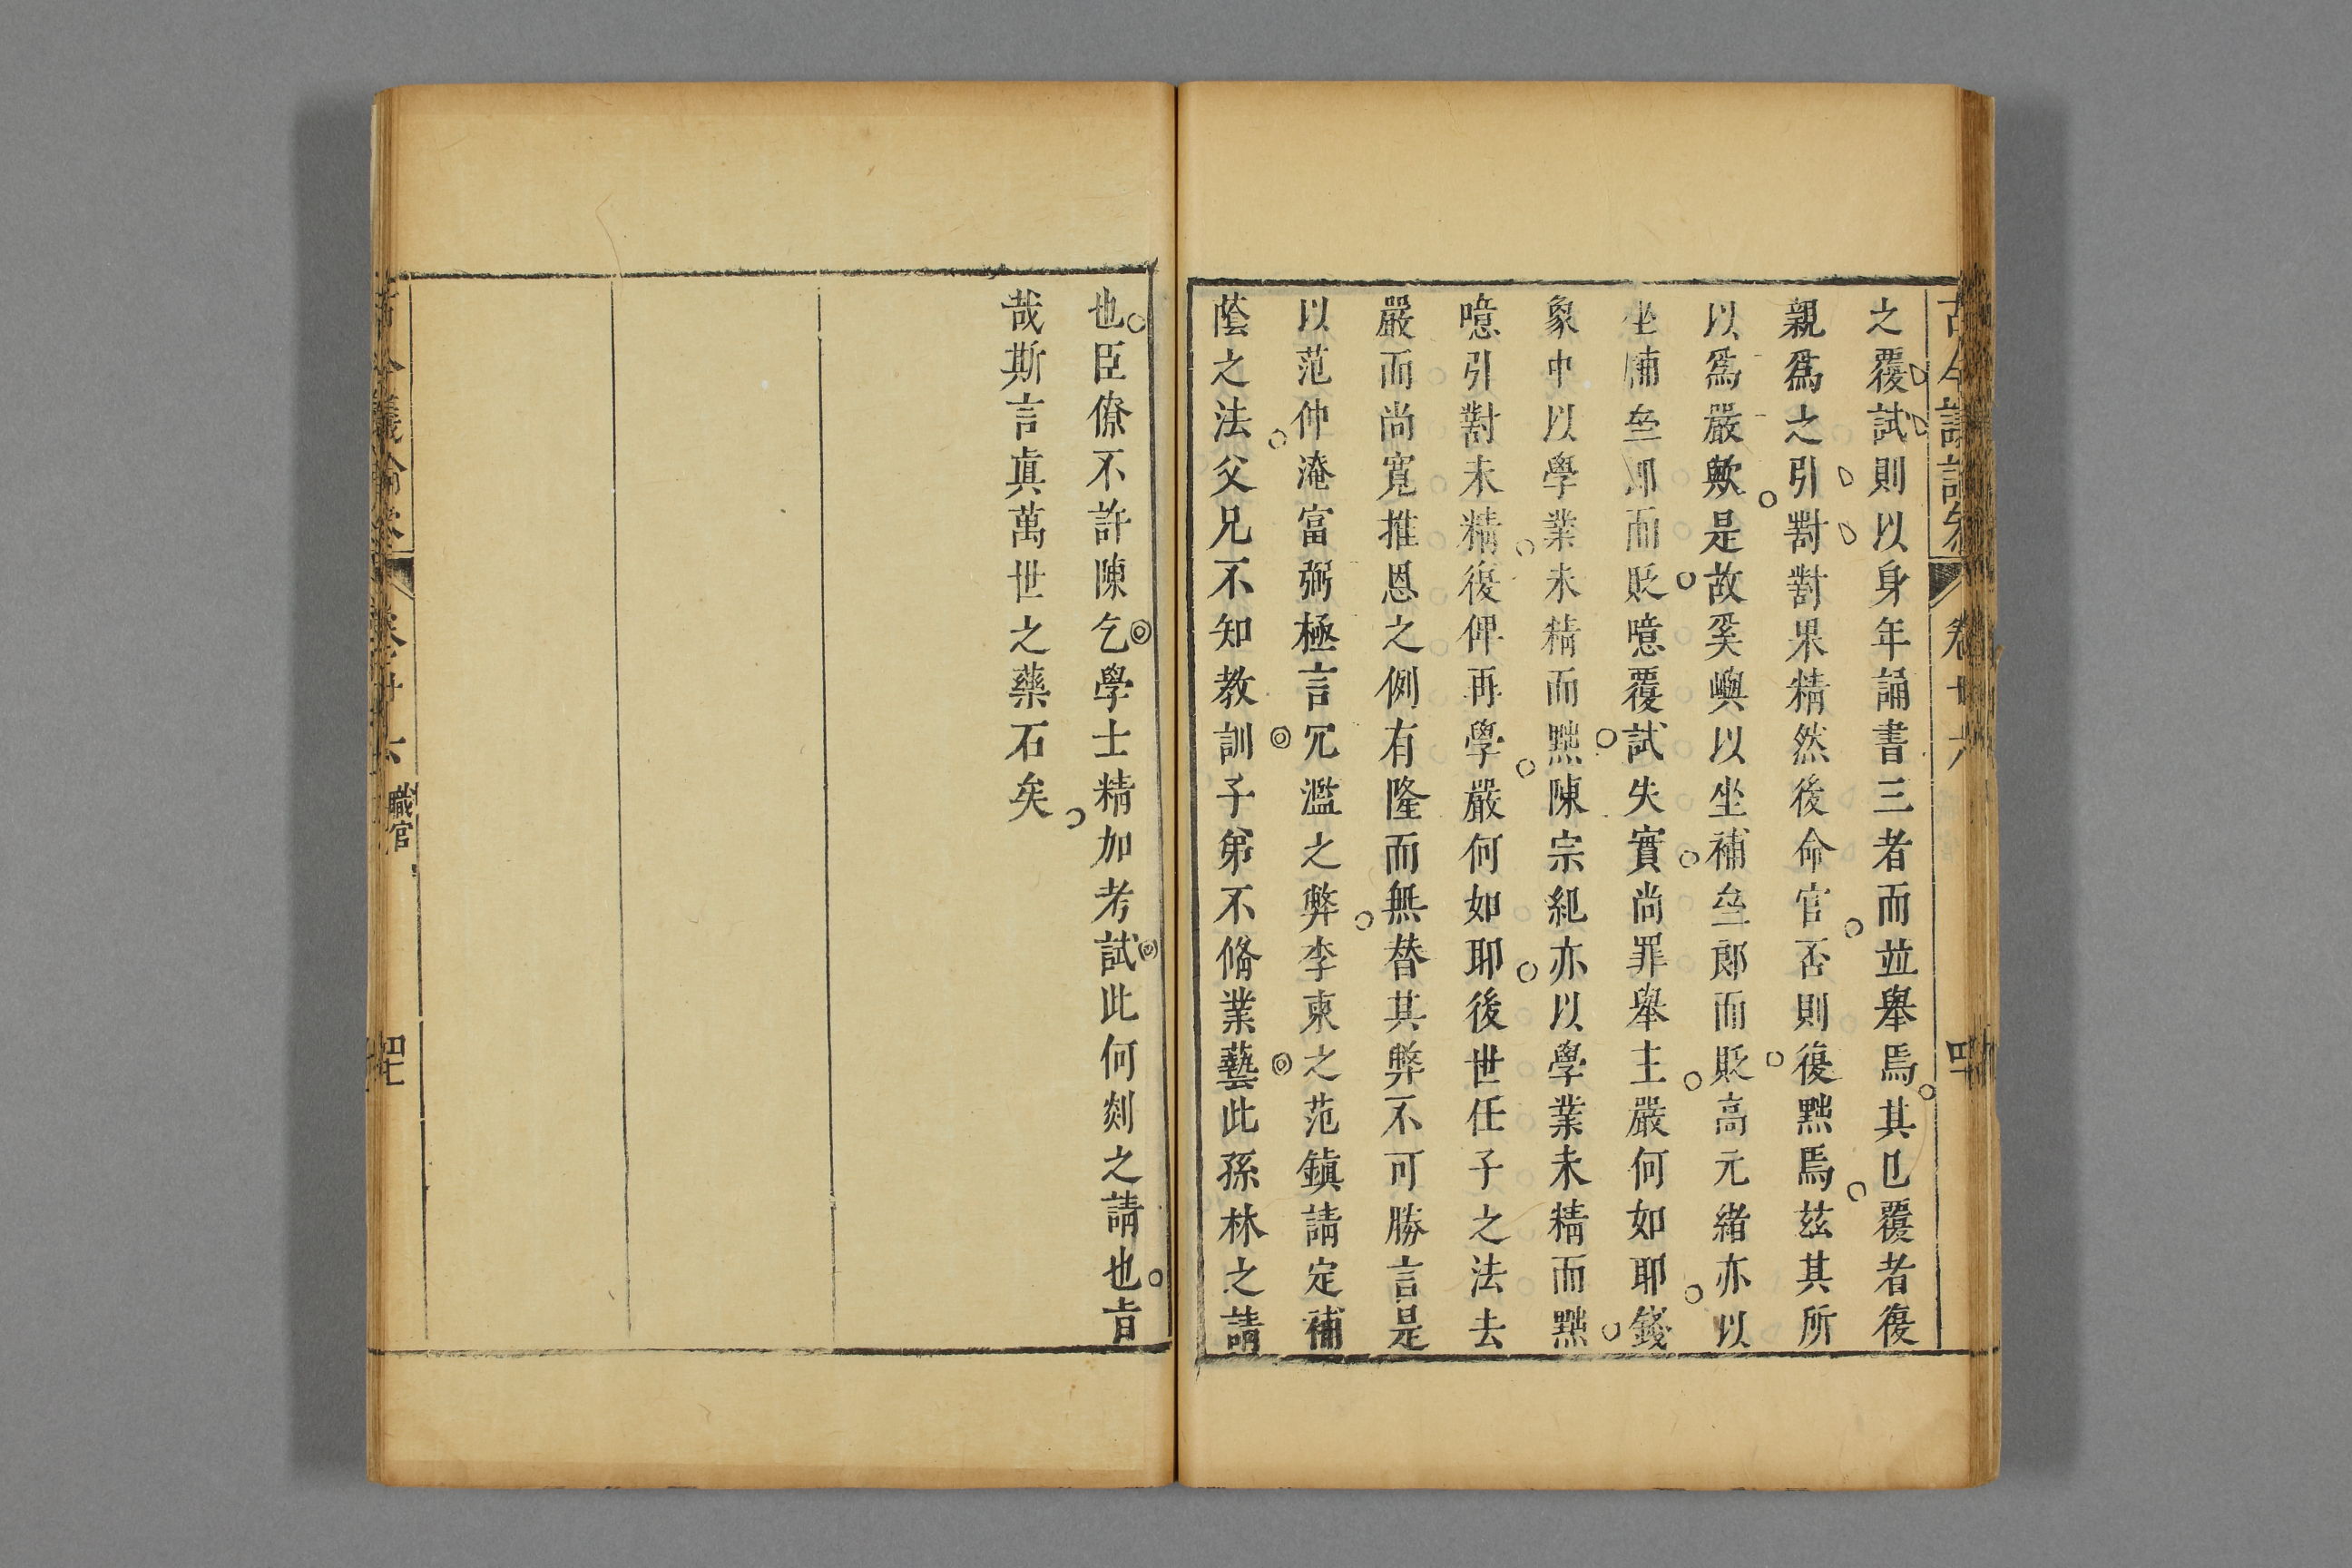 之覆試則以身年誦書三者而並舉焉其已覆者復
親爲之引對對果精然後命官否則復黜焉茲其所
以爲嚴歟是故奚嶼以坐補坐郎而貶高元緒亦以
補 而貶噫覆試失實尚罪舉主嚴何如耶錢
象中以學業未精而黜陳宗紀亦以學業未精而黜
噫引對未精復俾再學嚴何如耶後世任子之法去
嚴而尚寬推恩之例有隆而無替其弊不可勝言是
以范仲淹富弼極言冗濫之弊李柬之范鎮請定補
蔭之法父兄不知教訓子弟不脩業藝此孫林之請
也臣僚不許陳乞學士精加考試此何剡之請也旨
哉斯言眞萬世之藥石矣
職官